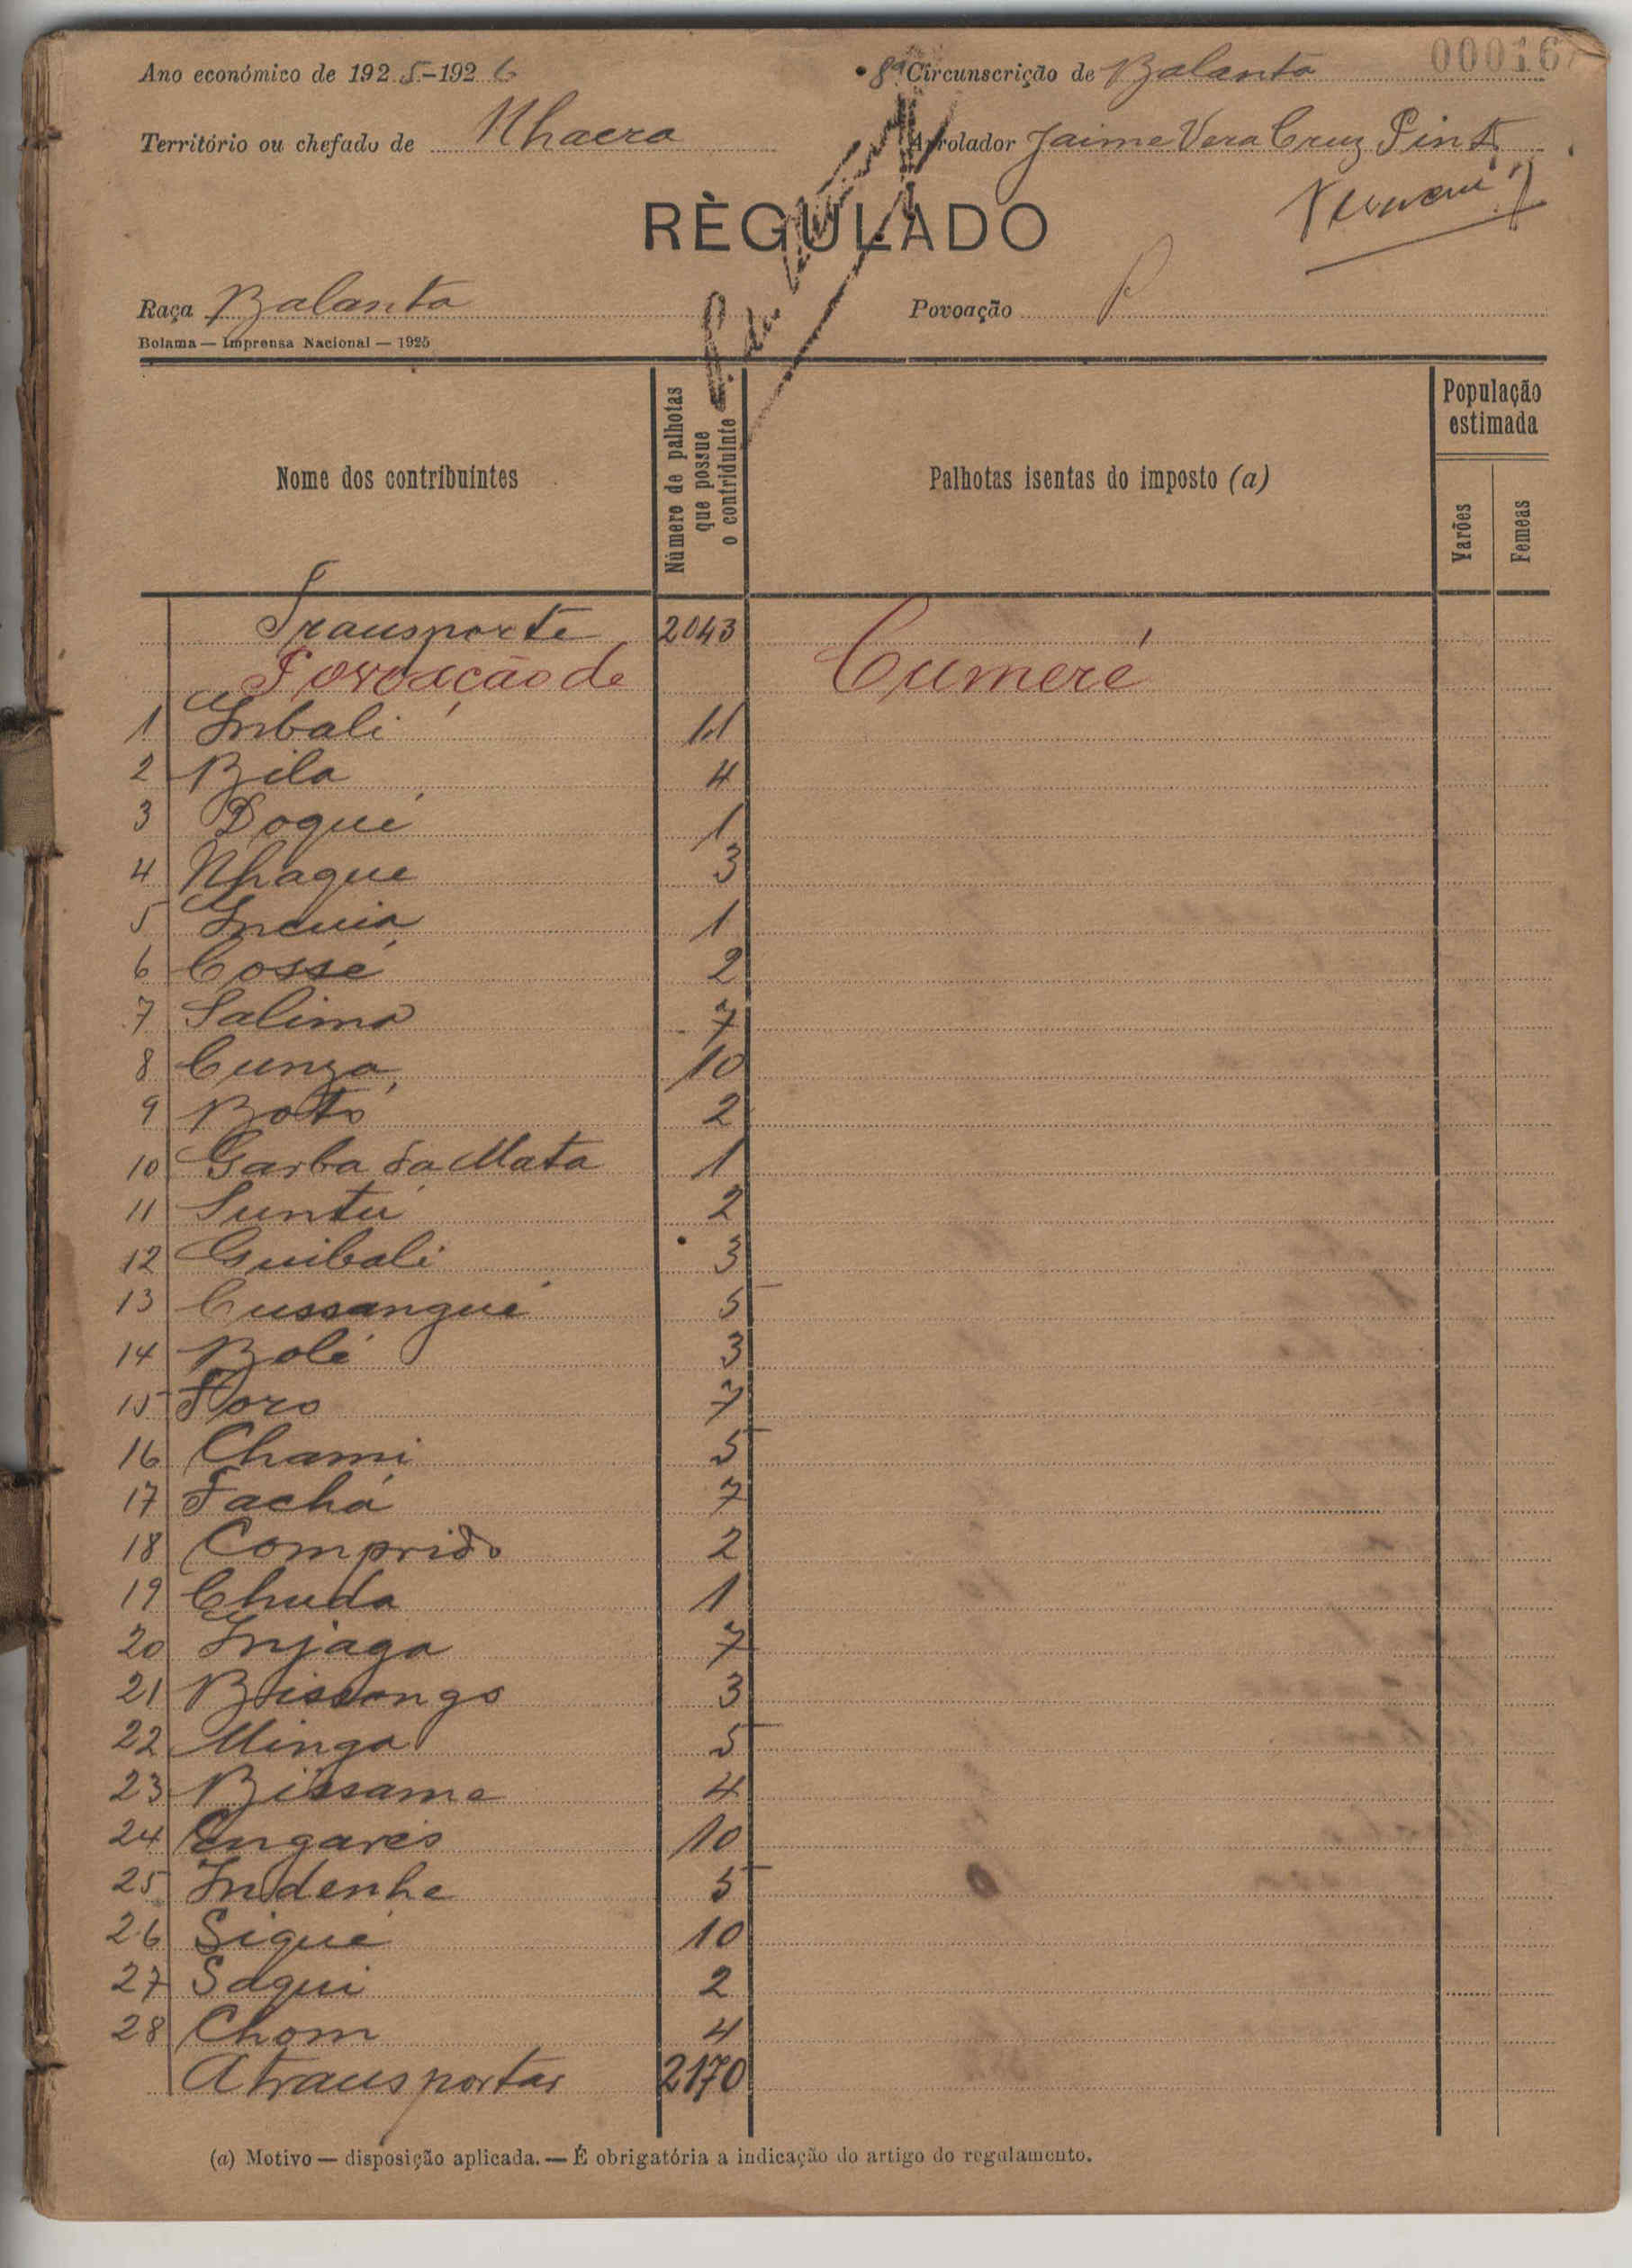 000167
Ano económico de 1925-1926
8ª Circunscrição de Balanta
Território ou chefado de Nhacra
Arrolador Jaime Vera Cruz Pinto
RÈGULADO
Raça Balanta
Povoação
Bolama — Imprensa Nacional — 1925
Nome dos contribuintes
Número de palhotas que possue o contriduinte
Palhotas isentas do imposto (a)
População estimada
Varões
Femeas
Transporte 2043
Povoação de Cumeré
1 Inbali 11
2 Bila 4
3 Doqué 1
4 Nhaque 3
5 Incuia 1
6 Cossé 2
7 Salima 7
8 Cunga 10
9 Botó 2
10 Garba da Mata 1
11 Suntú 2
12 Guibali 3
13 Cussangué 5
14 Bolé 3
15 Foro 7
16 Chami 5
17 Fachá 7
18 Comprido 2
19 Chuda 1
20 Injaga 7
21 Bissongo 3
22 Minga 5
23 Bissame 4
24 Engarés 10
25 Indenhe 5
26 Sigué 10
27 Sagui 2
28 Chom 4
A transportar 2170
(a) Motivo — disposição aplicada. — É obrigatória a indicação do artigo do regulamento.